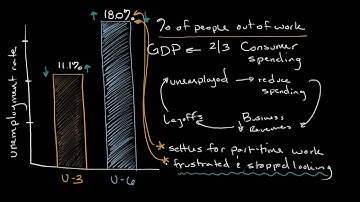 18.0%
11.1%
unemployment rate
U-3
U-6
% of people out of work
GDP ← 2/3 Consumer
spending
unemployed → reduce
spending
Business
Revenues
Layoffs
* settles for part-time work
* frustrated & stopped looking